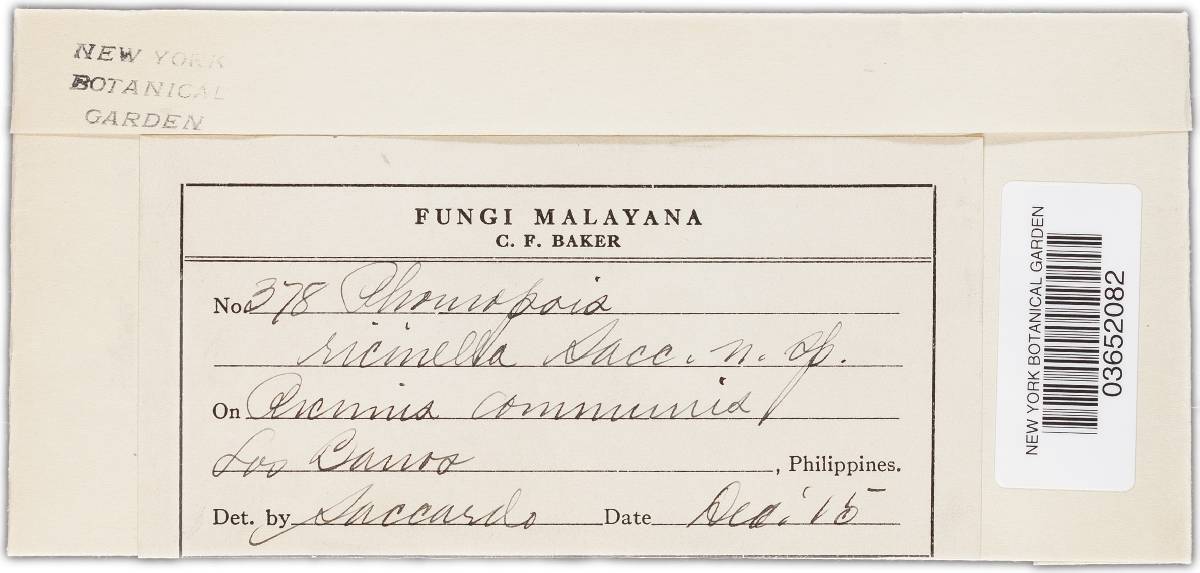 NEW YORK
BOTANICAL
GARDEN
FUNGI MALAYANA
C. F. BAKER
No. 378 Phomopsis
ricinella Sacc. n. sp.
On Ricinus communis
Los Banos, Philippines.
Det. by Saccardo Date Dec. '15
NEW YORK BOTANICAL GARDEN
03652082